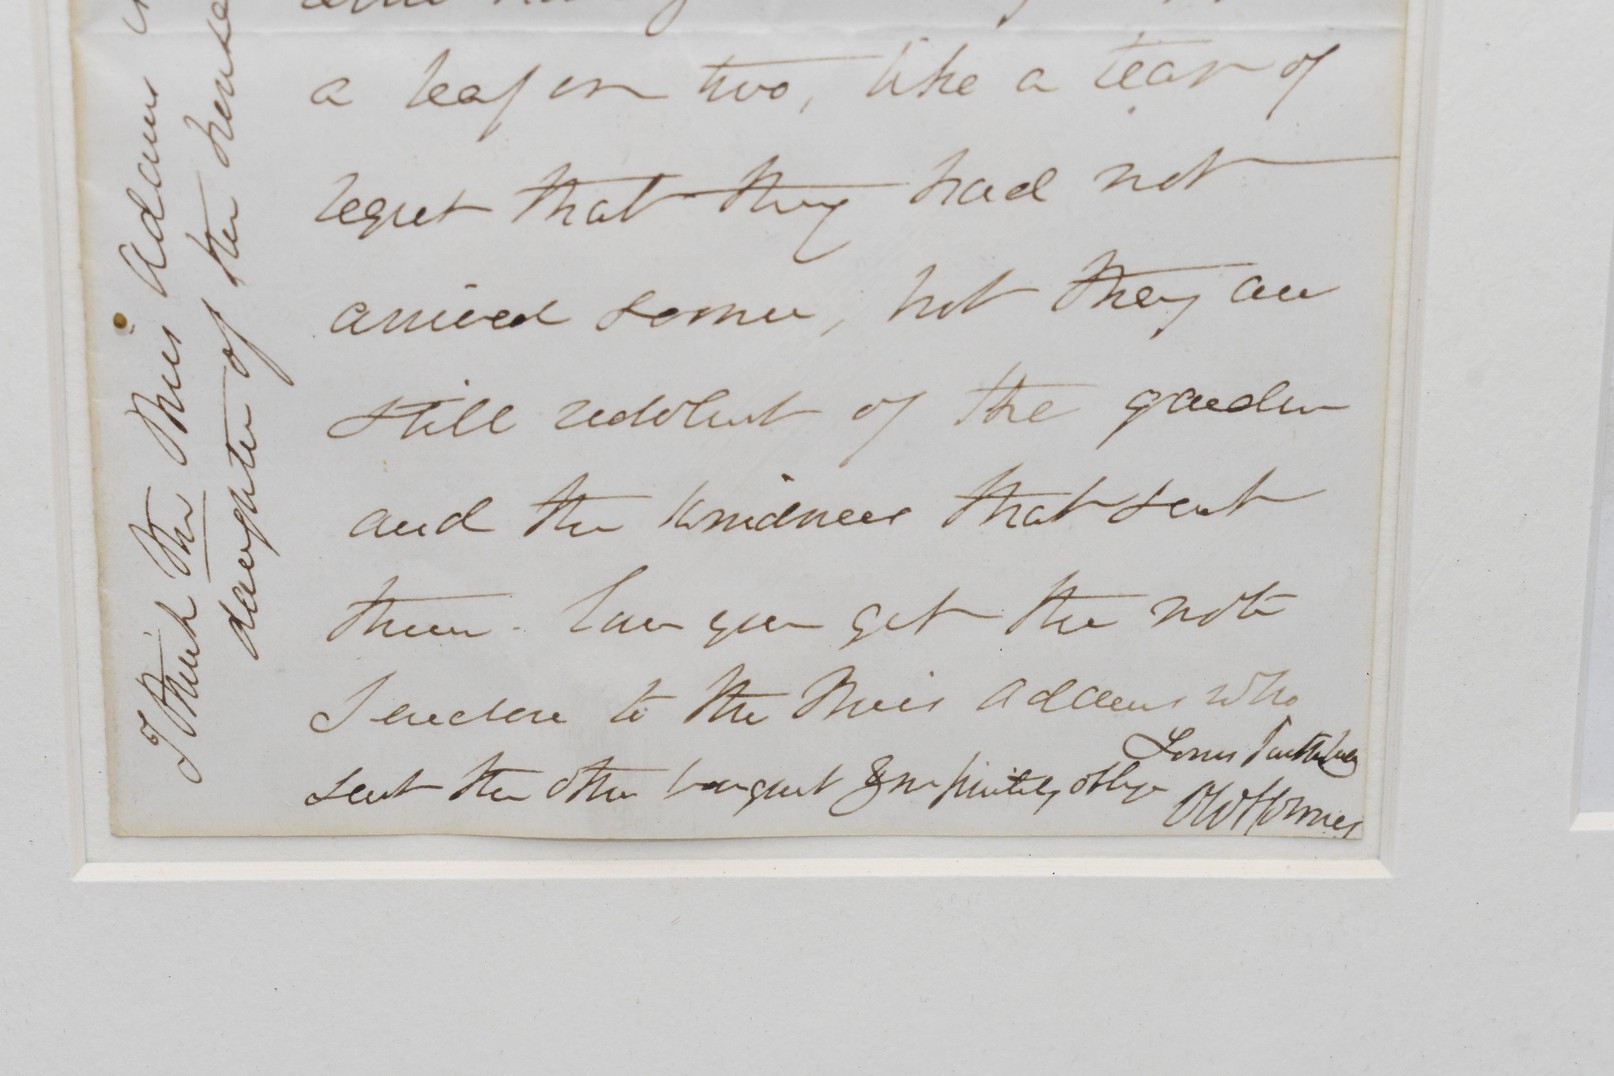 a leaf or two, like a tear of
regret that they had not
arrived sooner, but they are
still redolent of the garden
and the kindness that sent
them. Can you get the note
I enclose to the Miss Adams who
sent the other bouquet & infinitely oblige
Yours faithfully
OWHolmes
I think the Miss Adams
daughter of the